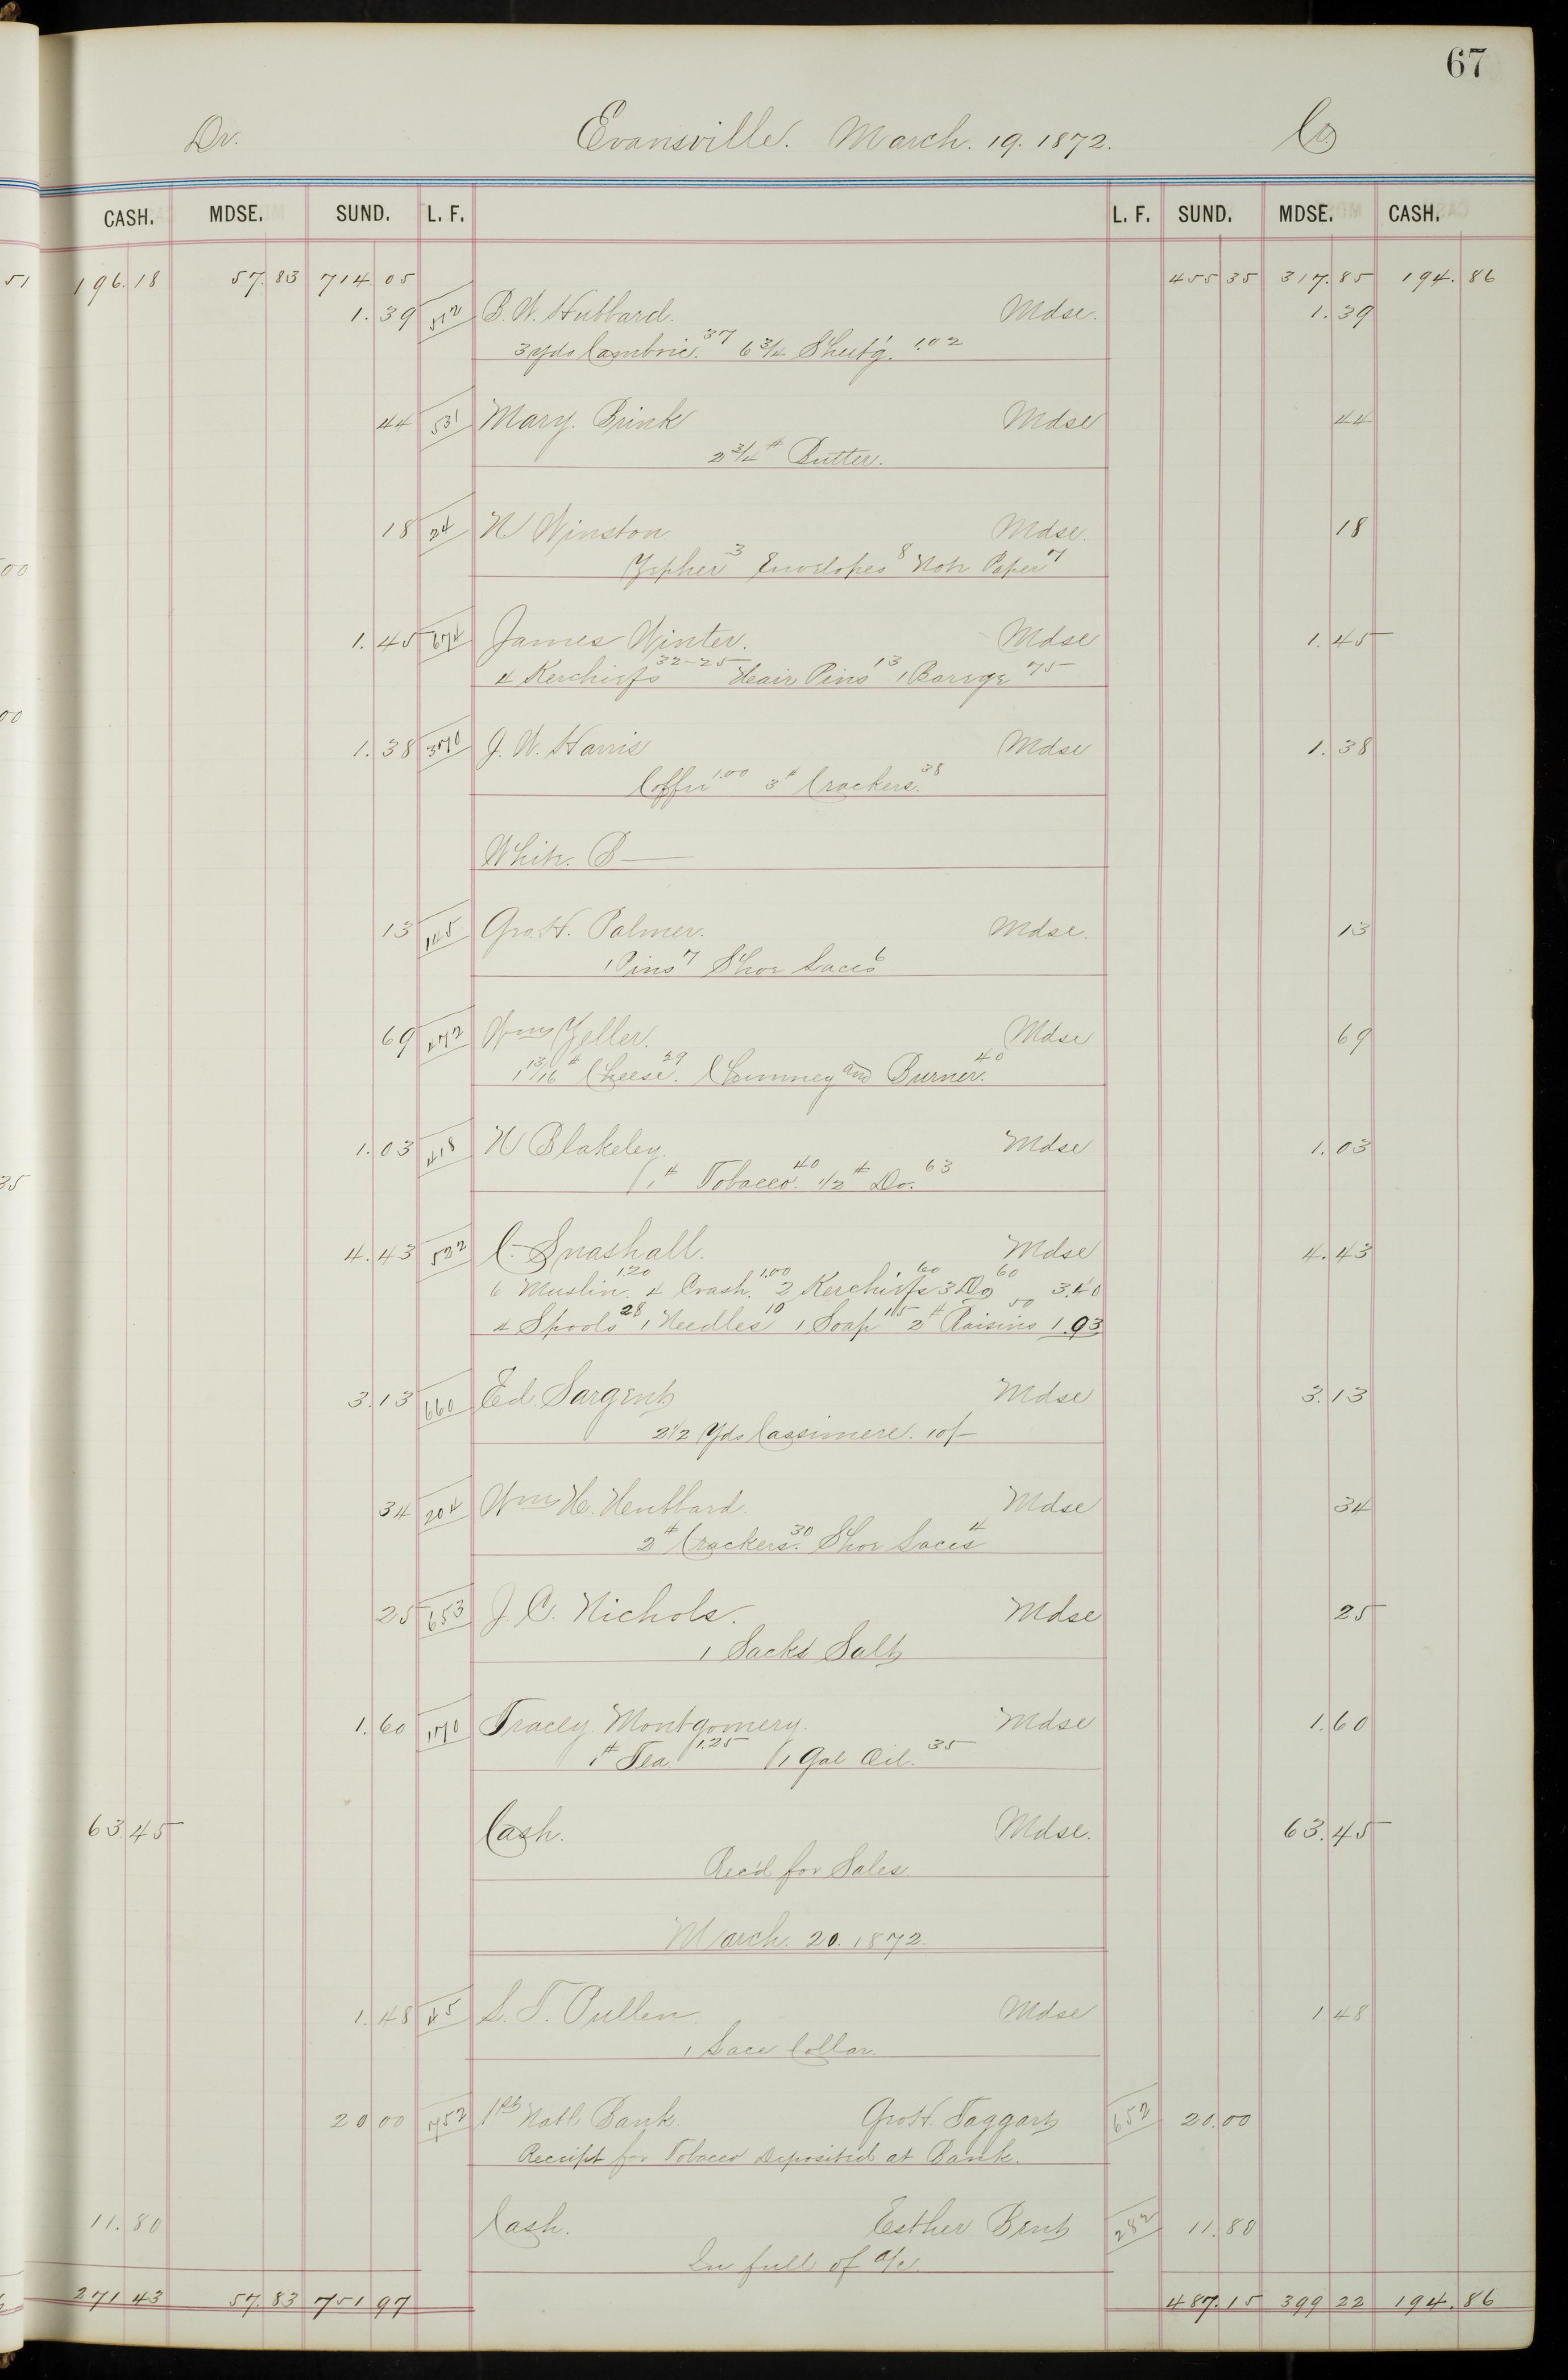 67
Dr. Evansville. March. 19. 1872. Cr
CASH. MDSE. SUND. L. F. L. F. SUND. MDSE. CASH.
51 196.18 57.83 714.05 455 35 317.85 194.86
1.39 512 B. W. Hubbard. Mdse. 1.39
3 yds Cambric. 37 6 3/4 Sheet'g. 1.02
44 531 Mary. Brink Mdse 44
2 3/4 # Butter.
18 24 N Winston Mdse. 18
00
Zepher 3 Envelopes 8 Note Paper 7
1.45 674 James Winter. Mdse 1.45
4 Kerchiefs 32-25 Hair Pins 13 1 Barege 75
00
1.38 370 J. W. Harris Mdse 1.38
Coffee 1.00 3 # Crackers. 38
White. B
13 145 Geo. H. Palmer. Mdse. 13
1 Pins 7 Shoe Laces 6
69 472 Wm Zeller. Mdse 69
1 13/16 # Cheese. 29 Chimney and Burner. 40
1.03 418 N Blakeley. Mdse 1.03
1 # Tobacco. 40 1/2 # Do. 63
35
4.43 522 C. Snashall. Mdse 4.43
6 Muslin. 1.20 4 Crash. 1.00 2 Kerchiefs 60 3 Do 60 3.40
4 Spools 28 1 Needles 10 1 Soap 15 2 # Raisins 50 1.93
3.13 660 Ed. Sargent Mdse 3.13
2 1/2 Yds Cassimere. 10/-
34 204 Wm H. Hubbard. Mdse 34
2 # Crackers. 30 Shoe Laces 4
25 653 J. C. Nichols. Mdse 25
1 Sack Salt
1.60 170 Tracey. Montgomery. Mdse 1.60
1 # Tea 1.25 1 Gal Oil. 35
63.45 Cash. Mdse. 63.45
Rec'd for Sales.
March. 20. 1872.
1.48 45 S. T. Pullen Mdse 1 48
1 Lace Collar.
20 00 752 1st Natl Bank. Geo H. Taggart 652 20.00
Receipt for Tobacco Deposited at Bank.
11.80 Cash. Esther Bent 282 11.80
In full of a/c.
271 43 57.83 751 97 487.15 399 22 194.86